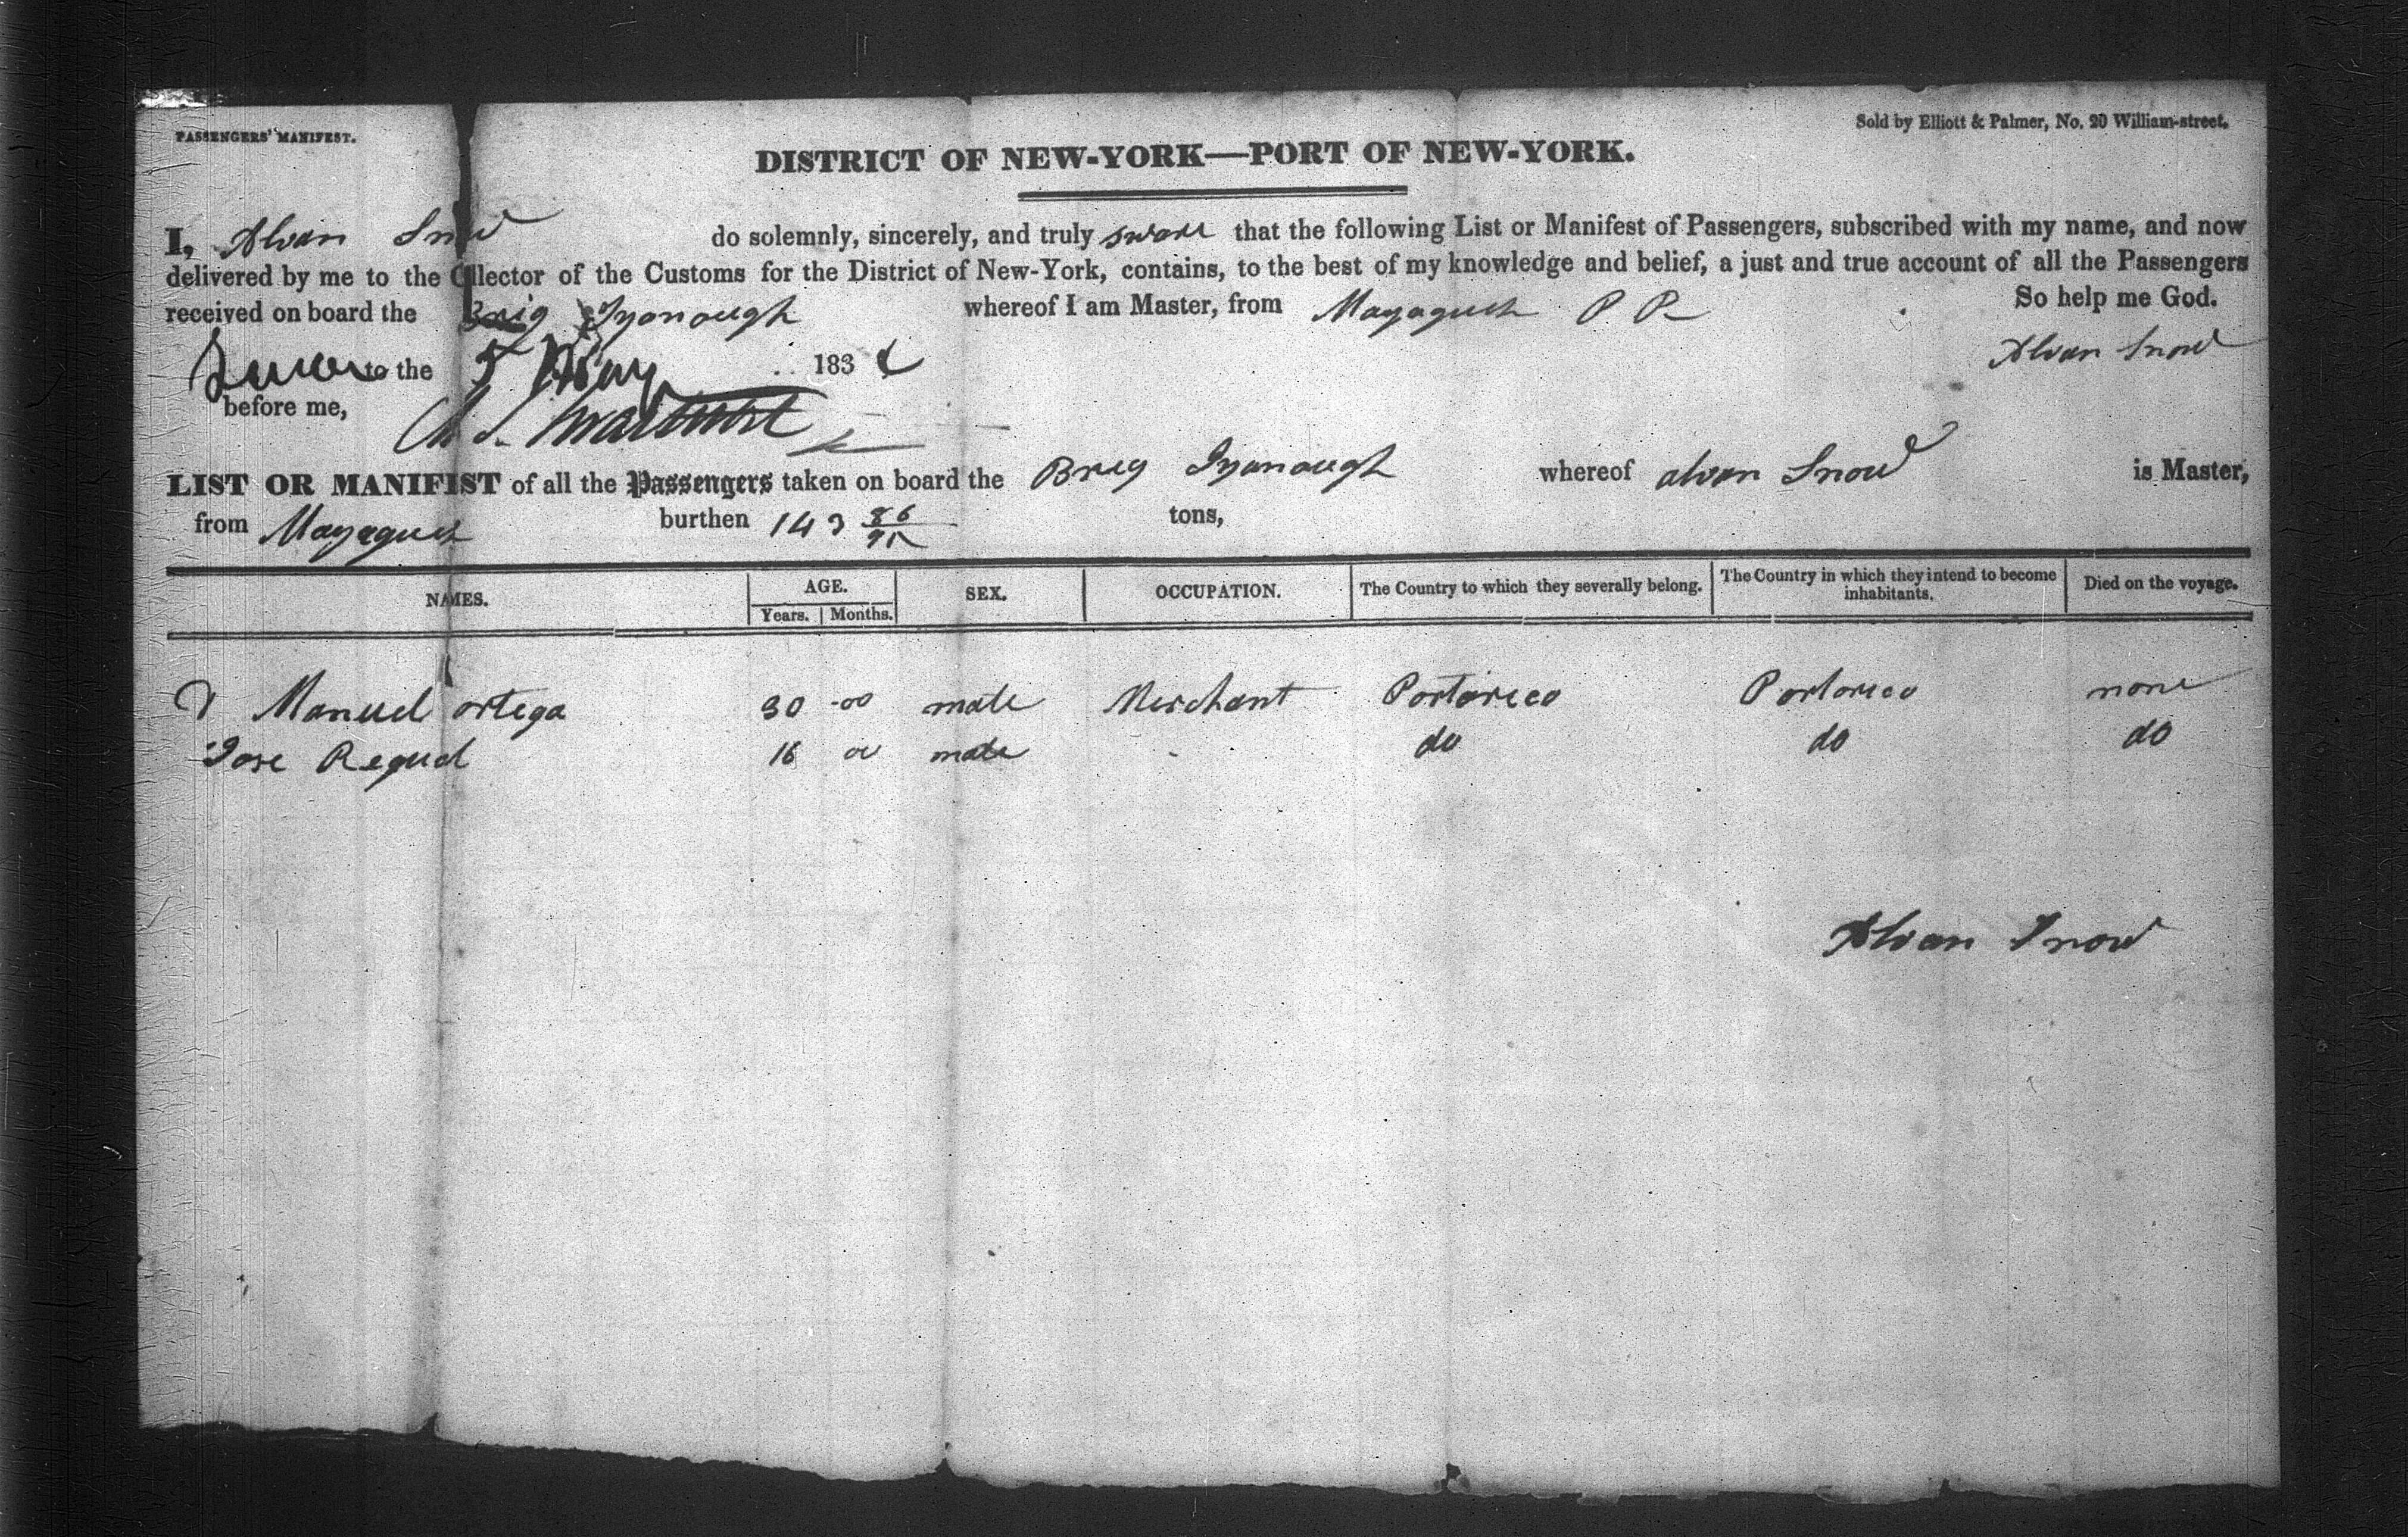 PASSENGERS' MANIFEST.
Sold by Elliott & Palmer, No. 20 William-street.
DISTRICT OF NEW-YORK—PORT OF NEW-YORK.
I, Alvan Snow do solemnly, sincerely, and truly swear that the following List or Manifest of Passengers, subscribed with my name, and now
delivered by me to the Collector of the Customs for the District of New-York, contains, to the best of my knowledge and belief, a just and true account of all the Passengers
received on board the Brig Iyanough whereof I am Master, from Mayaguez P R So help me God.
Alvan Snow
Sworn to the 5 May 183
before me,
LIST OR MANIFEST of all the Passengers taken on board the Brig Iyanough whereof alvan Snow is Master,
from Mayaguez burthen 143 86/95 tons,
NAMES. AGE. SEX. OCCUPATION. The Country to which they severally belong. The Country in which they intend to become inhabitants. Died on the voyage.
Years. Months.
Manuel ortega 30 -00 male Merchant Portorico Portorico none
Jose 16 00 male - do do do
Alvan Snow